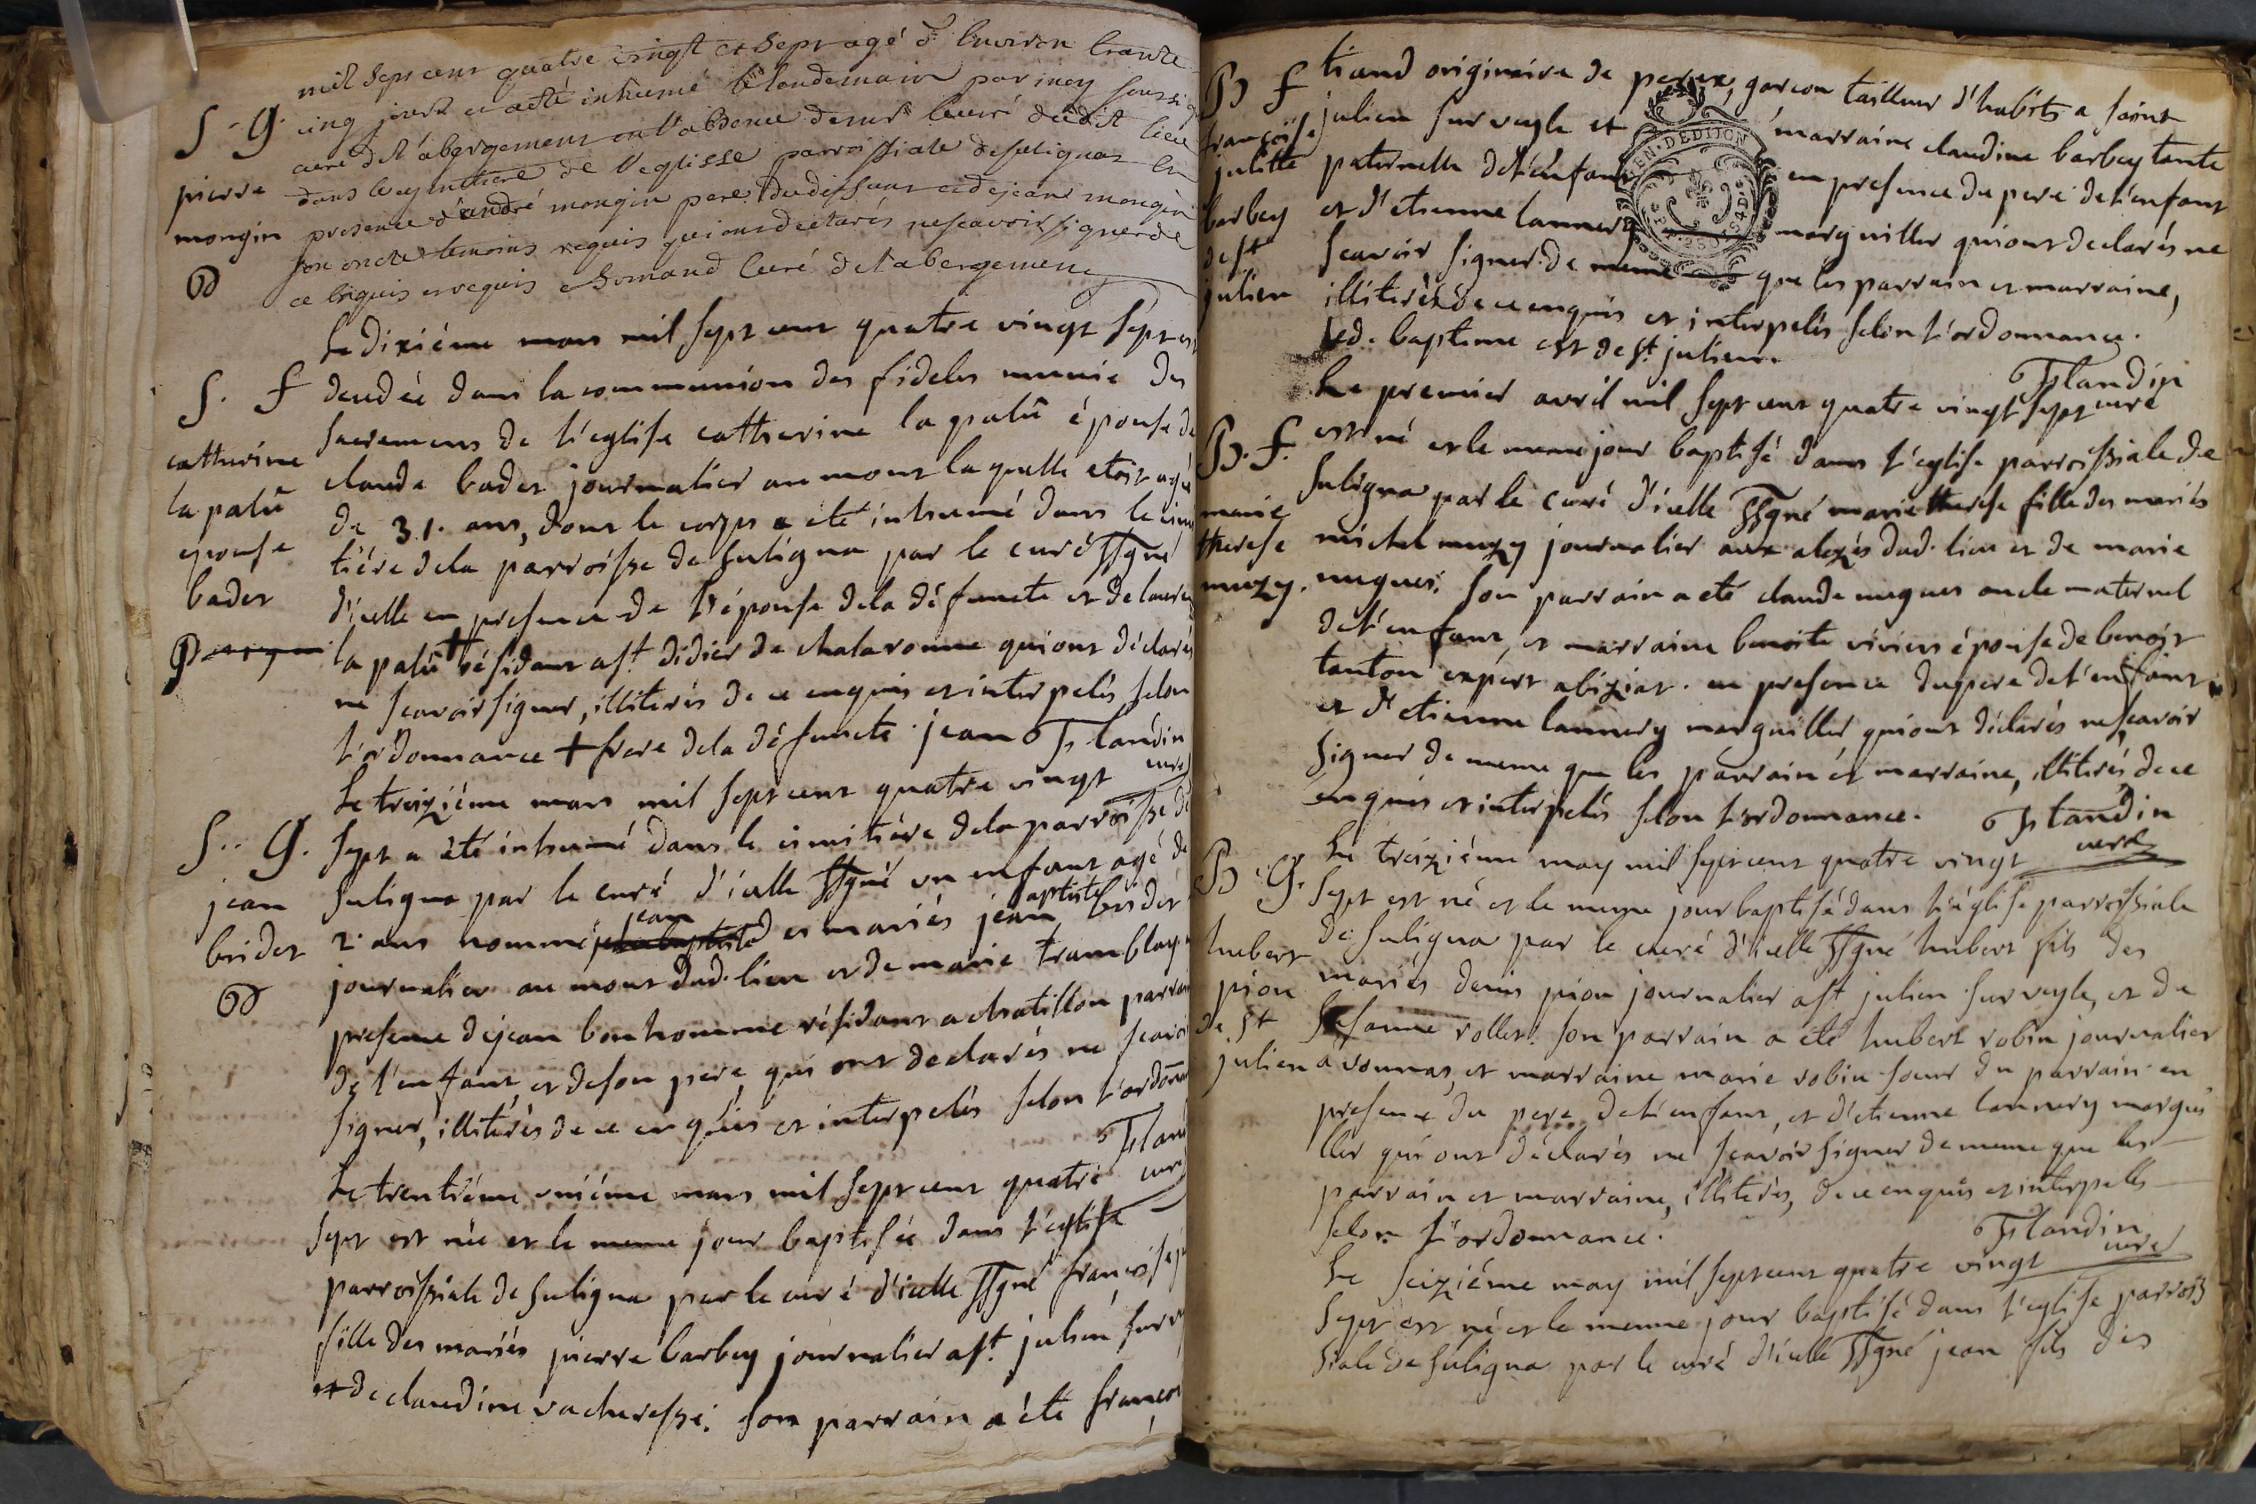 mil sept cent quatre vingt et sept agé d'environ trante
S. G. cinq jours et a eté inhumé le lendemain par moy soussigné
curé de l'abergement en l'absence de mr le curé dudit lieu
pierre dans le cymittiere de l'eglisse parroissiale de suligna en
mongin presence d'andré mongin pere du defunt et de jean mongin
son oncle temoins requis qui ont declarés ne scavoir signer de
ce enquis et requis curé de l'abergement
Le dixiéme mars mil sept cent quatre vingt sept est
S. f decedée dans la communion des fideles munie des
catherine sacremens de l'eglise catherine la palû épouse de
la palû claude badet journalier au mont laquelle etoit agée
epouse de 31. ans, dont le corps a eté inhumé dans le cime
badet tiére de la parroisse de suligna par le curé ssgné
d'icelle en presence de l'épouse de la défuncte et de
la palû + résidant a st didier de chalaronne qui ont déclarés
ne scavoir signer, illiterés de ce enquis et interpelés selon
l'ordonnance + frere de la défuncte jean Flandin
curé
Le treiziéme mars mil sept cent quatre vingt
S. G. sept a été inhumé dans le cimitiére de la parroisse de
jean suligna par le curé d'icelle ssgné un enfant agé de
bridet 2. ans nommé jean des mariés jean baptiste bridet
journalier au mont dud. lieu et de marie tramblay
presence de jean bonhomme résidant a chatillon parrain
de l'enfant, et de son pere, qui ont declarés ne scavoir
signer, illiterés de ce enquis et interpelés selon l'ordonn
Fland
curé
Le trentiéme uniéme mars mil sept cent quatre
sept est née et le meme jour baptisée dans l'eglise
parroissiale de suligna par le curé d'icelle ssgné françoise
fille des mariés pierre barbey journalier a st. julien sur v
et de claudine vacheresse. son parrain a été françois
B f tiand originaire de perex, garcon tailleur d'habits a saint
françoise julien sur veyle et marraine claudine barbey tante
julitte paternelle de l'enfant en presence du pere de l'enfant
barbey et d'etienne lannery marguiller qui ont declarés ne
de st scavoir signer de meme que les parrain et marraine,
julien illiterés de ce enquis et interpelés selon l'ordonnance.
led. baptême est de st. julien.
Flandin
curé
Le premier avril mil sept cent quatre vingt sept
B. f. est né et le meme jour baptisé dans l'eglise parroissiale de
suligna par le curé d'icelle ssgné marie therese fille des mariés
marie michel muzy journalier aux alezés dud. lieu et de marie
therese nugues. son parrain a eté claude nugues oncle maternel
muzy. de l'enfant, et marraine benoite viviens épouse de benoit
tanton expert abiziat. en presence du pere de l'enfant
et d'etienne lannery marguiller qui ont déclarés ne scavoir
signer de meme que les parrain et marraine, illiterés de ce
enquis et interpelés selon l'ordonnance. Flandin
curé
Le treiziéme may mil sept cent quatre vingt
B. G. sept est né et le meme jour baptisé dans l'église parroissiale
hubert de suligna par le curé d'icelle ssgné hubert fils des
pion mariés denis pion journalier a st julien sur veyle, et de
de st rollet. son parrain a eté hubert robin journalier
julien a vonnas, et marraine marie robin soeur du parrain en
presence du pere de l'enfant, et d'etienne lannery margui
ller qui ont déclarés ne scavoir signer de meme que les
parrain et marraine, illiterés, de ce enquis et interpelés
selon l'ordonnance. Flandin
curé
Le seiziéme may mil sept cent quatre vingt
sept est né et le meme jour baptisé dans l'eglise parrois
siale de suligna par le curé d'icelle ssgné jean fils des